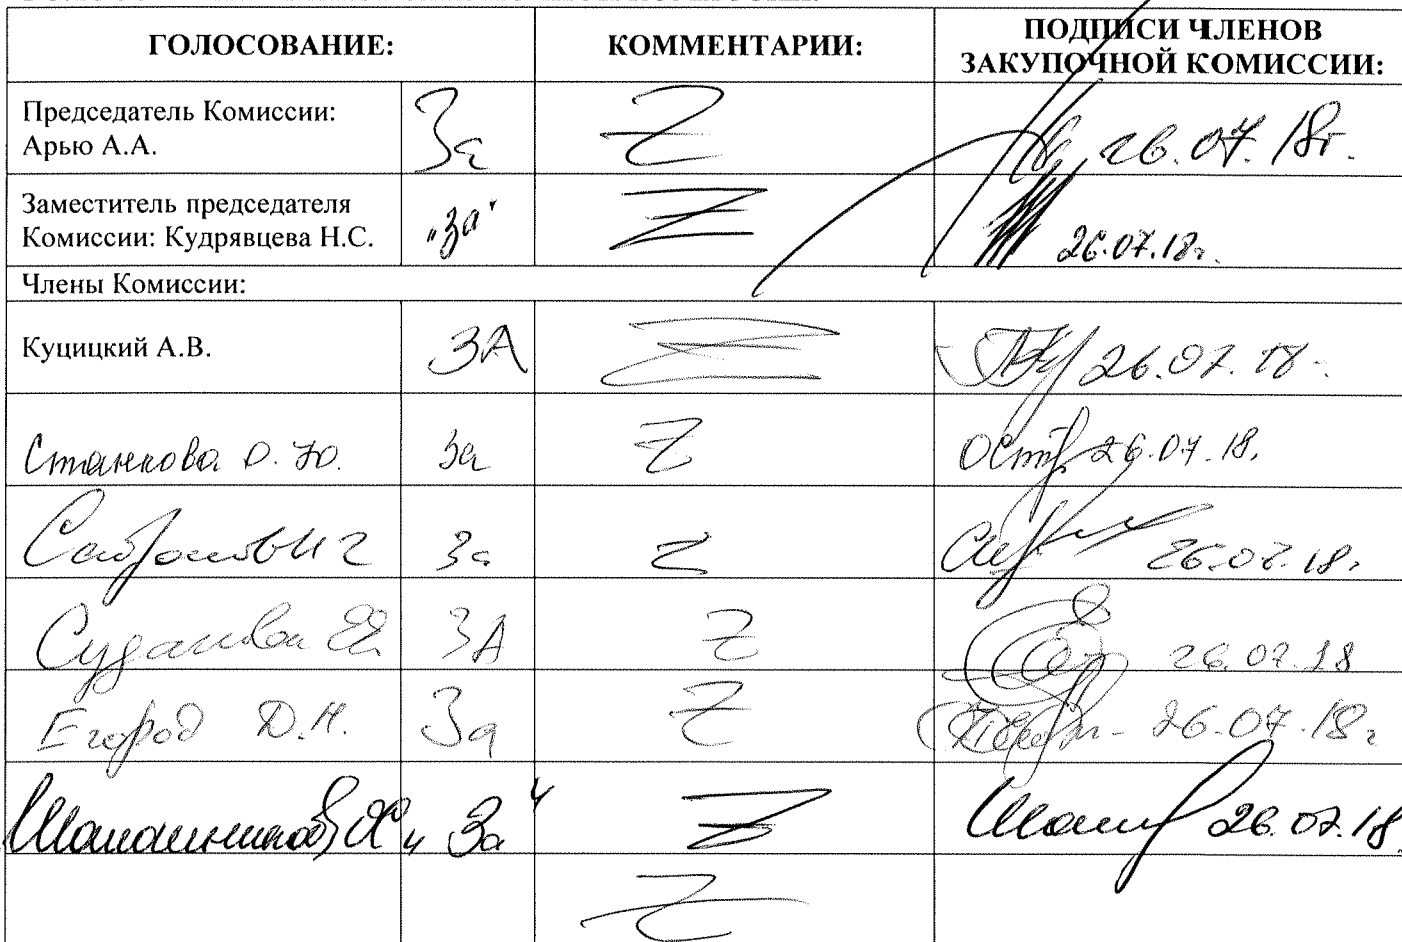 ГОЛОСОВАНИЕ: КОММЕНТАРИИ: ПОДПИСИ ЧЛЕНОВ
ЗАКУПОЧНОЙ КОМИССИИ:
Председатель Комиссии:
Арью А.А. За Z 26.07.18г.
Заместитель председателя
Комиссии: Кудрявцева Н.С. "за" Z 26.07.18г.
Члены Комиссии:
Куцицкий А.В. ЗА Z 26.07.18г.
Станкова О.Ю. За Z 26.07.18.
За Z 26.07.18.
ЗА Z 26.07.18
Егоров Д.Н. За Z 26.07.18г
"За" Z 26.07.18
Z